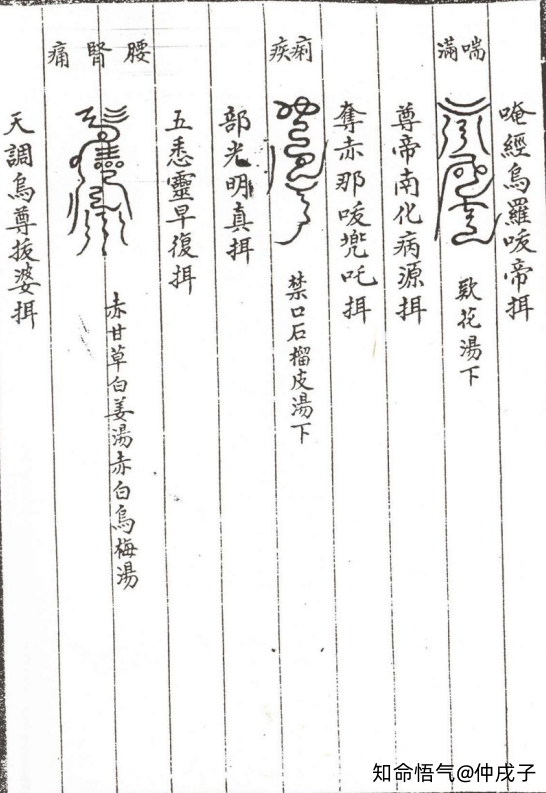 唵經烏羅唆帝揖
喘滿
欵花湯下
尊帝南化病源揖
奪赤那唆兜吒揖
痢疾
禁口石榴皮湯下
部光明真揖
五悉靈早復揖
腰腎痛
赤甘草白姜湯赤白烏梅湯
天調烏尊拔婆揖
知命悟气@仲戌子